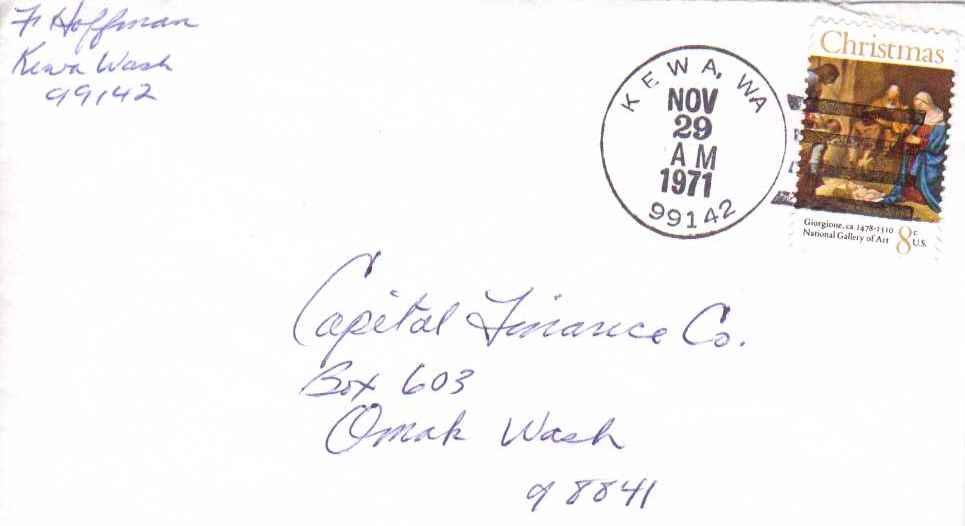 F Hoffman
Kewa Wash
99142
KEWA, WA
NOV
29
AM
1971
99142
Christmas
Giorgione, ca 1478-1510
National Gallery of Art
8c
U.S.
Capital Finance Co.
Box 603
Omak Wash
98841